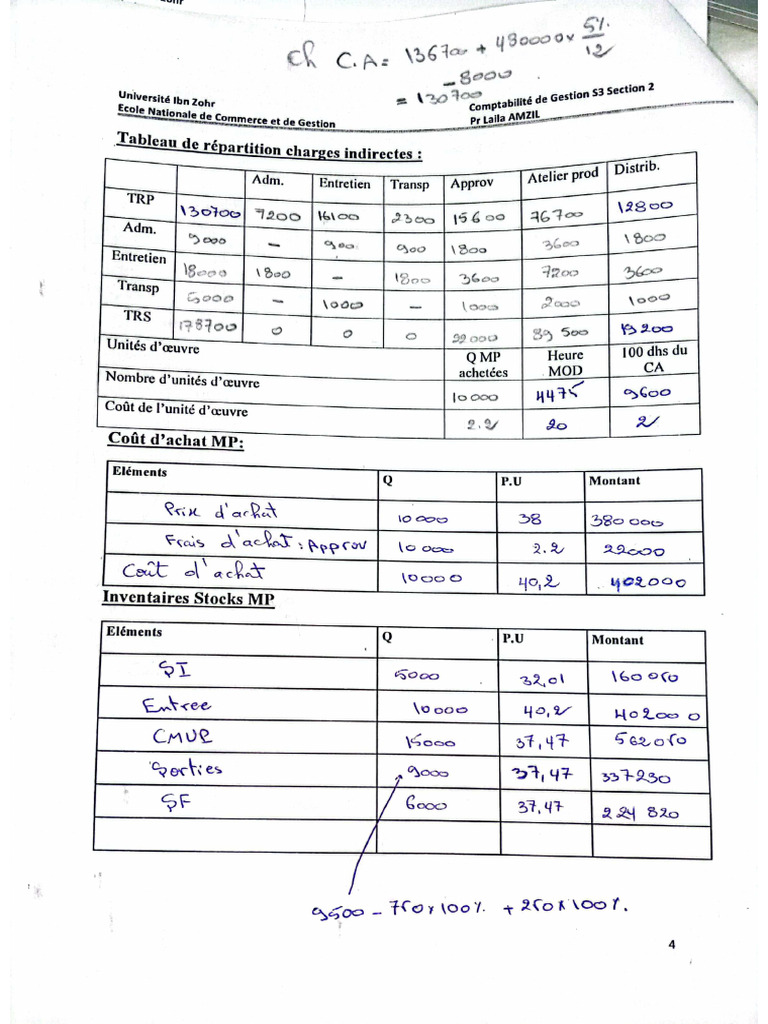 Ch C.A = 136700 + 480000 x 5% / 12
- 8000
= 130700
Université Ibn Zohr
Ecole Nationale de Commerce et de Gestion
Comptabilité de Gestion S3 Section 2
Pr Laila AMZIL
Tableau de répartition charges indirectes :
Adm. Entretien Transp Approv Atelier prod Distrib.
TRP 130700 7200 16100 2300 15600 76700 12800
Adm. 9000 - 900 900 1800 3600 1800
Entretien 18000 1800 - 1800 3600 7200 3600
Transp 5000 - 1000 - 1000 2000 1000
TRS 178700 0 0 0 22000 89500 19200
Unités d'œuvre Q MP achetées Heure MOD 100 dhs du CA
Nombre d'unités d'œuvre 10000 4475 9600
Coût de l'unité d'œuvre 2.2 20 2
Coût d'achat MP:
Eléments Q P.U Montant
Prix d'achat 10000 38 380000
Frais d'achat : Approv 10000 2.2 22000
Coût d'achat 10000 40,2 402000
Inventaires Stocks MP
Eléments Q P.U Montant
SI 5000 32,01 160050
Entrée 10000 40,2 402000
CMUP 15000 37,47 562050
Sorties 9000 37,47 337230
SF 6000 37,47 224820
9500 - 750x100% + 250x100%.
4